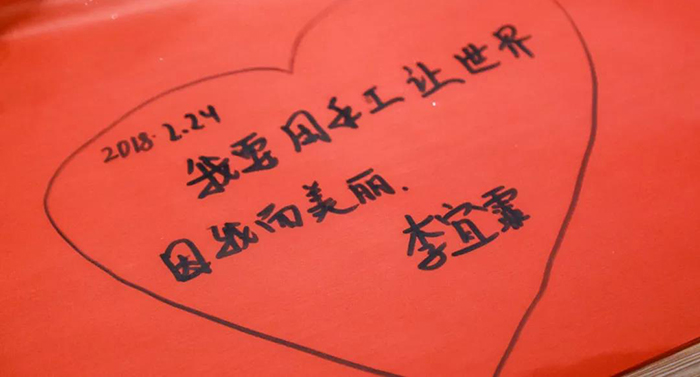 2018.2.24
我要用手工让世界
因我而美丽.
李宜霏